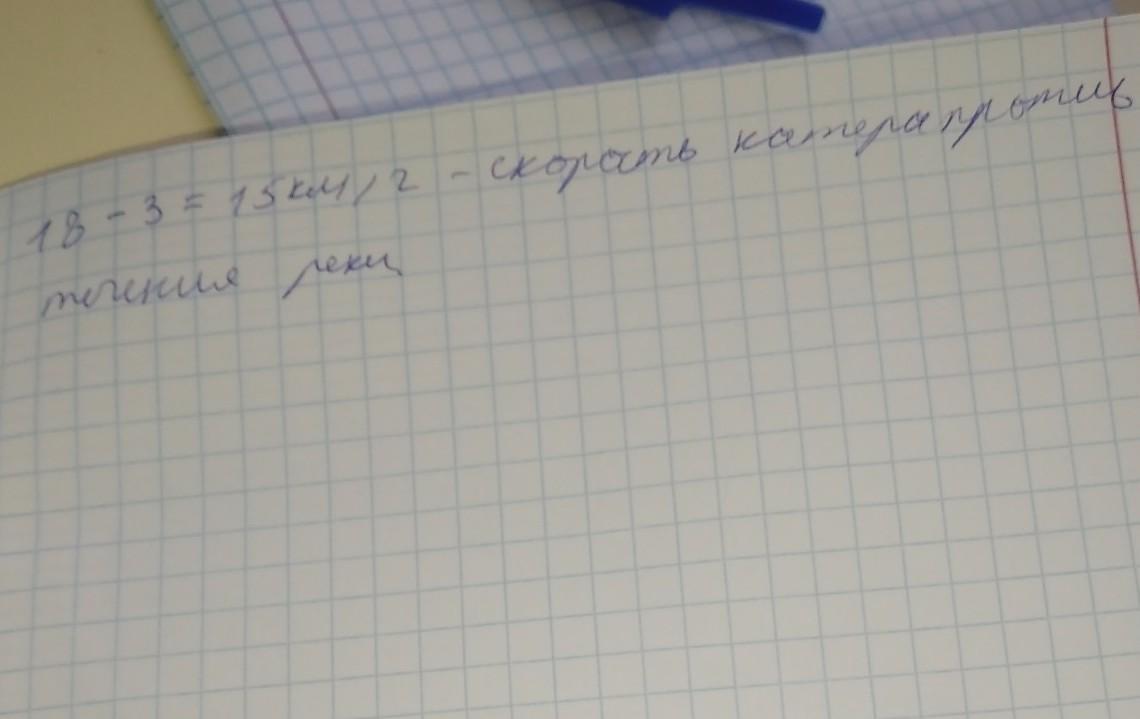 18 - 3 = 15 км/г - скорость катера против
течения реки